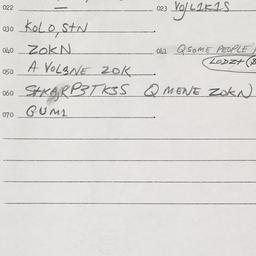 022 — 023 VO/L1K1S
030 KOLO, STN
040 ZOKN 041 Q SOME PEOPLE
050 A VOL3NE ZOK
060 Q MENE ZOKN
070 GUM1